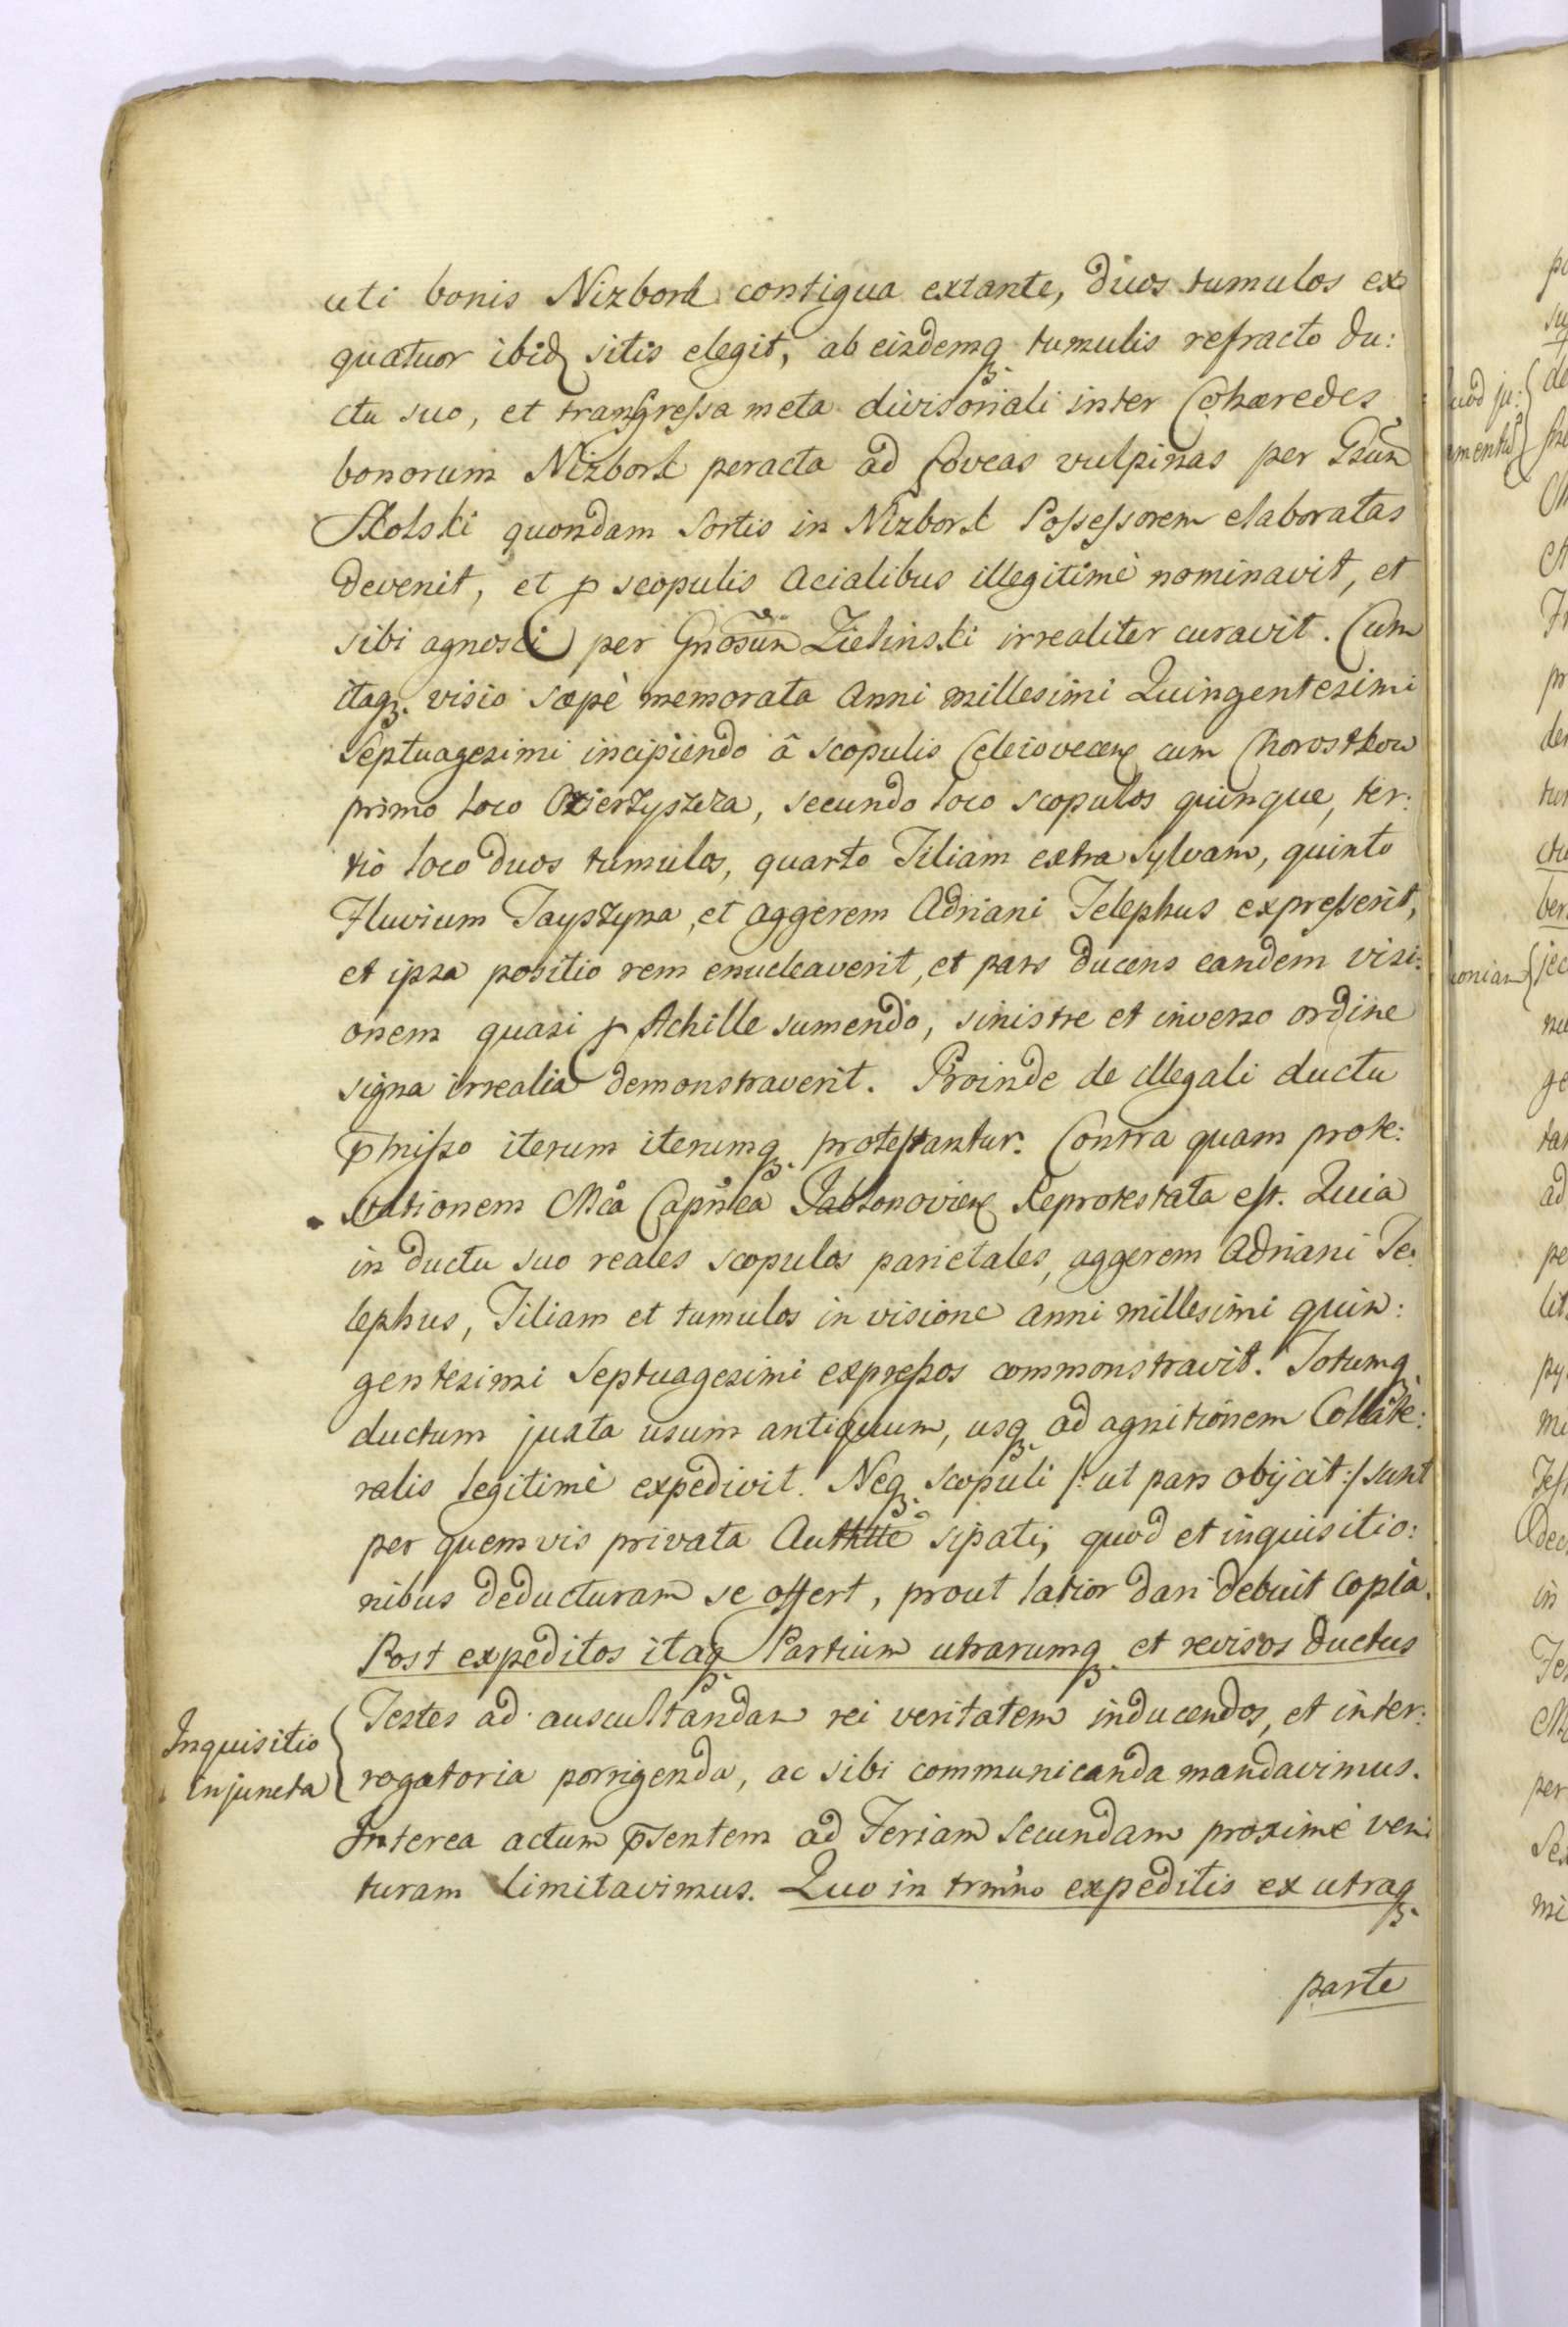 uti bonis Nizbork contigua extante, duos tumulos ex
quatuor ibidq sitis elegit, ab eisdemq. tumulis refracto du:
ctu suo, et transgressa meta divisoriali inter Cohæredes
bonorum Nizbork peracta ad foveas vulpinas per Gsũm
Skolski quondam Sortis in Nizbork Possessorem elaboratas
devenit, et p scopulis acialibus illegitimè nominavit, et
sibi agnosci per Gnosũm Zielinski irrealiter curavit. Cum
itaq. visio sæpè memorata Anni millesimi Quingentesimi
Septuagesimi incipiendo â scopulis Celeiovecen cum Chorostkow
primo loco Ozierzyszcza, secundo loco scopulos quinque, ter:
tio loco duos tumulos, quarto Tiliam extra sylvam, quinto
Fluvium Tayszyna, et aggerem Adriani Telephus expresserit,
et ipsa positio rem enucleaverit, et pars ducens eandem visi:
onem quasi p Achille sumendo, sinistre et inverso ordine
signa irrealia demonstraverit. Proinde de illegali ductu
pmisso iterum iterumq. protestantur. Contra quam prote:
stationem Mcã Capnea Jablonovien Reprotestata est. Quia
in ductu suo reales scopulos parietales, aggerem Adriani Te:
lephus, Tiliam et tumulos in visione anni millesimi quin:
gentesimi Septuagesimi expressos commonstravit. Totumq.
ductum juxta usum antiquum, usq. ad agnitionem Collate:
ralis legitimè expedivit. Neq. scopuli /: ut pars obijcit :/ sunt
per quemvis privata Authtte sipati, quod et inquisitio:
nibus deducturam se offert, prout latior dari debuit copia.
Post expeditos itaq. Partium utrarumq. et revisos ductus
Inquisitio
injuncta
Testes ad auscultandam rei veritatem inducendos, et inter:
rogatoria porrigenda, ac sibi communicanda mandavimus.
Interea actum psentem ad Feriam secundam proximè veni
turam limitavimus. Quo in trmno expeditis ex utraq.
parte